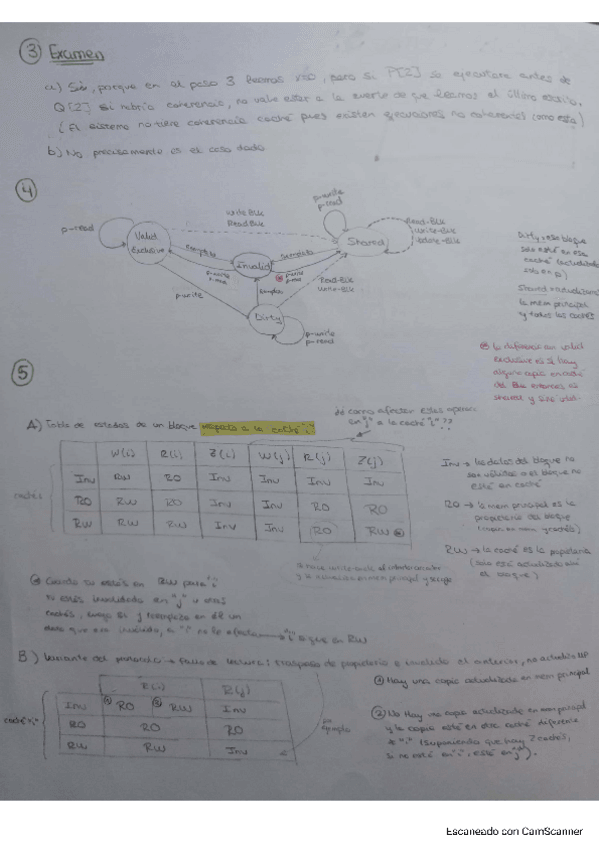 ③ Examen
a) Sí, porque en el paso 3 leemos x=0, pero si P[2] se ejecutare antes de
Q[2] si habría coherencia, no vale estar a la suerte de que leamos el último escrito.
(El sistema no tiene coherencia caché pues existen ejecuciones no coherentes como esta)
b) No precisamente es el caso dado
④
p-read
Valid
Exclusive
Write Blk
Read Blk
p-write
p-read
Shared
Read-Blk
Write-Blk
Invalid
p-write
Dirty
Read-Blk
Write-Blk
p-write
p-read
Dirty → ese bloque
solo está en esa
caché
Shared → actualizamos
la mem principal
y todas las cachés
la diferencia con valid
exclusive es si hay
alguna copia en caché
shared y sino excl.
⑤
A) Tabla de estados de un bloque respecto a la caché "i"
de como afectan estas operac.
en "j" a la caché "i" ??
W(i) R(i) Z(i) W(j) R(j) Z(j)
Inv RW RO Inv Inv Inv Inv
RO RW RO Inv Inv RO RO
RW RW RW Inv Inv RO RW
Inv → los datos del bloque no
son válidos o el bloque no
está en caché
RO → la mem principal es la
propietaria del bloque
RW → la caché es la propietaria
(solo está actualizado ahí
el bloque)
Cuando tu estás en RW para "i"
tu estás invalidado en "j" u otras
cachés, luego si j reemplaza en él un
dato que era inválido, a "i" no le afecta → "i" sigue en RW
B) Variante del protocolo → fallo de lectura: traspaso de propietario e invalido el anterior, no actualizo MP
R(i) R(j)
caché "i"
Inv ① RO ② RW Inv
RO RO RO
RW RW Inv
por
ejemplo
① Hay una copia actualizada en mem principal
② No Hay una copia actualizada en mem principal
y la copia está en otra caché diferente
a "i" (suponiendo que hay 2 cachés,
si no está en "i", está en "j").
Escaneado con CamScanner